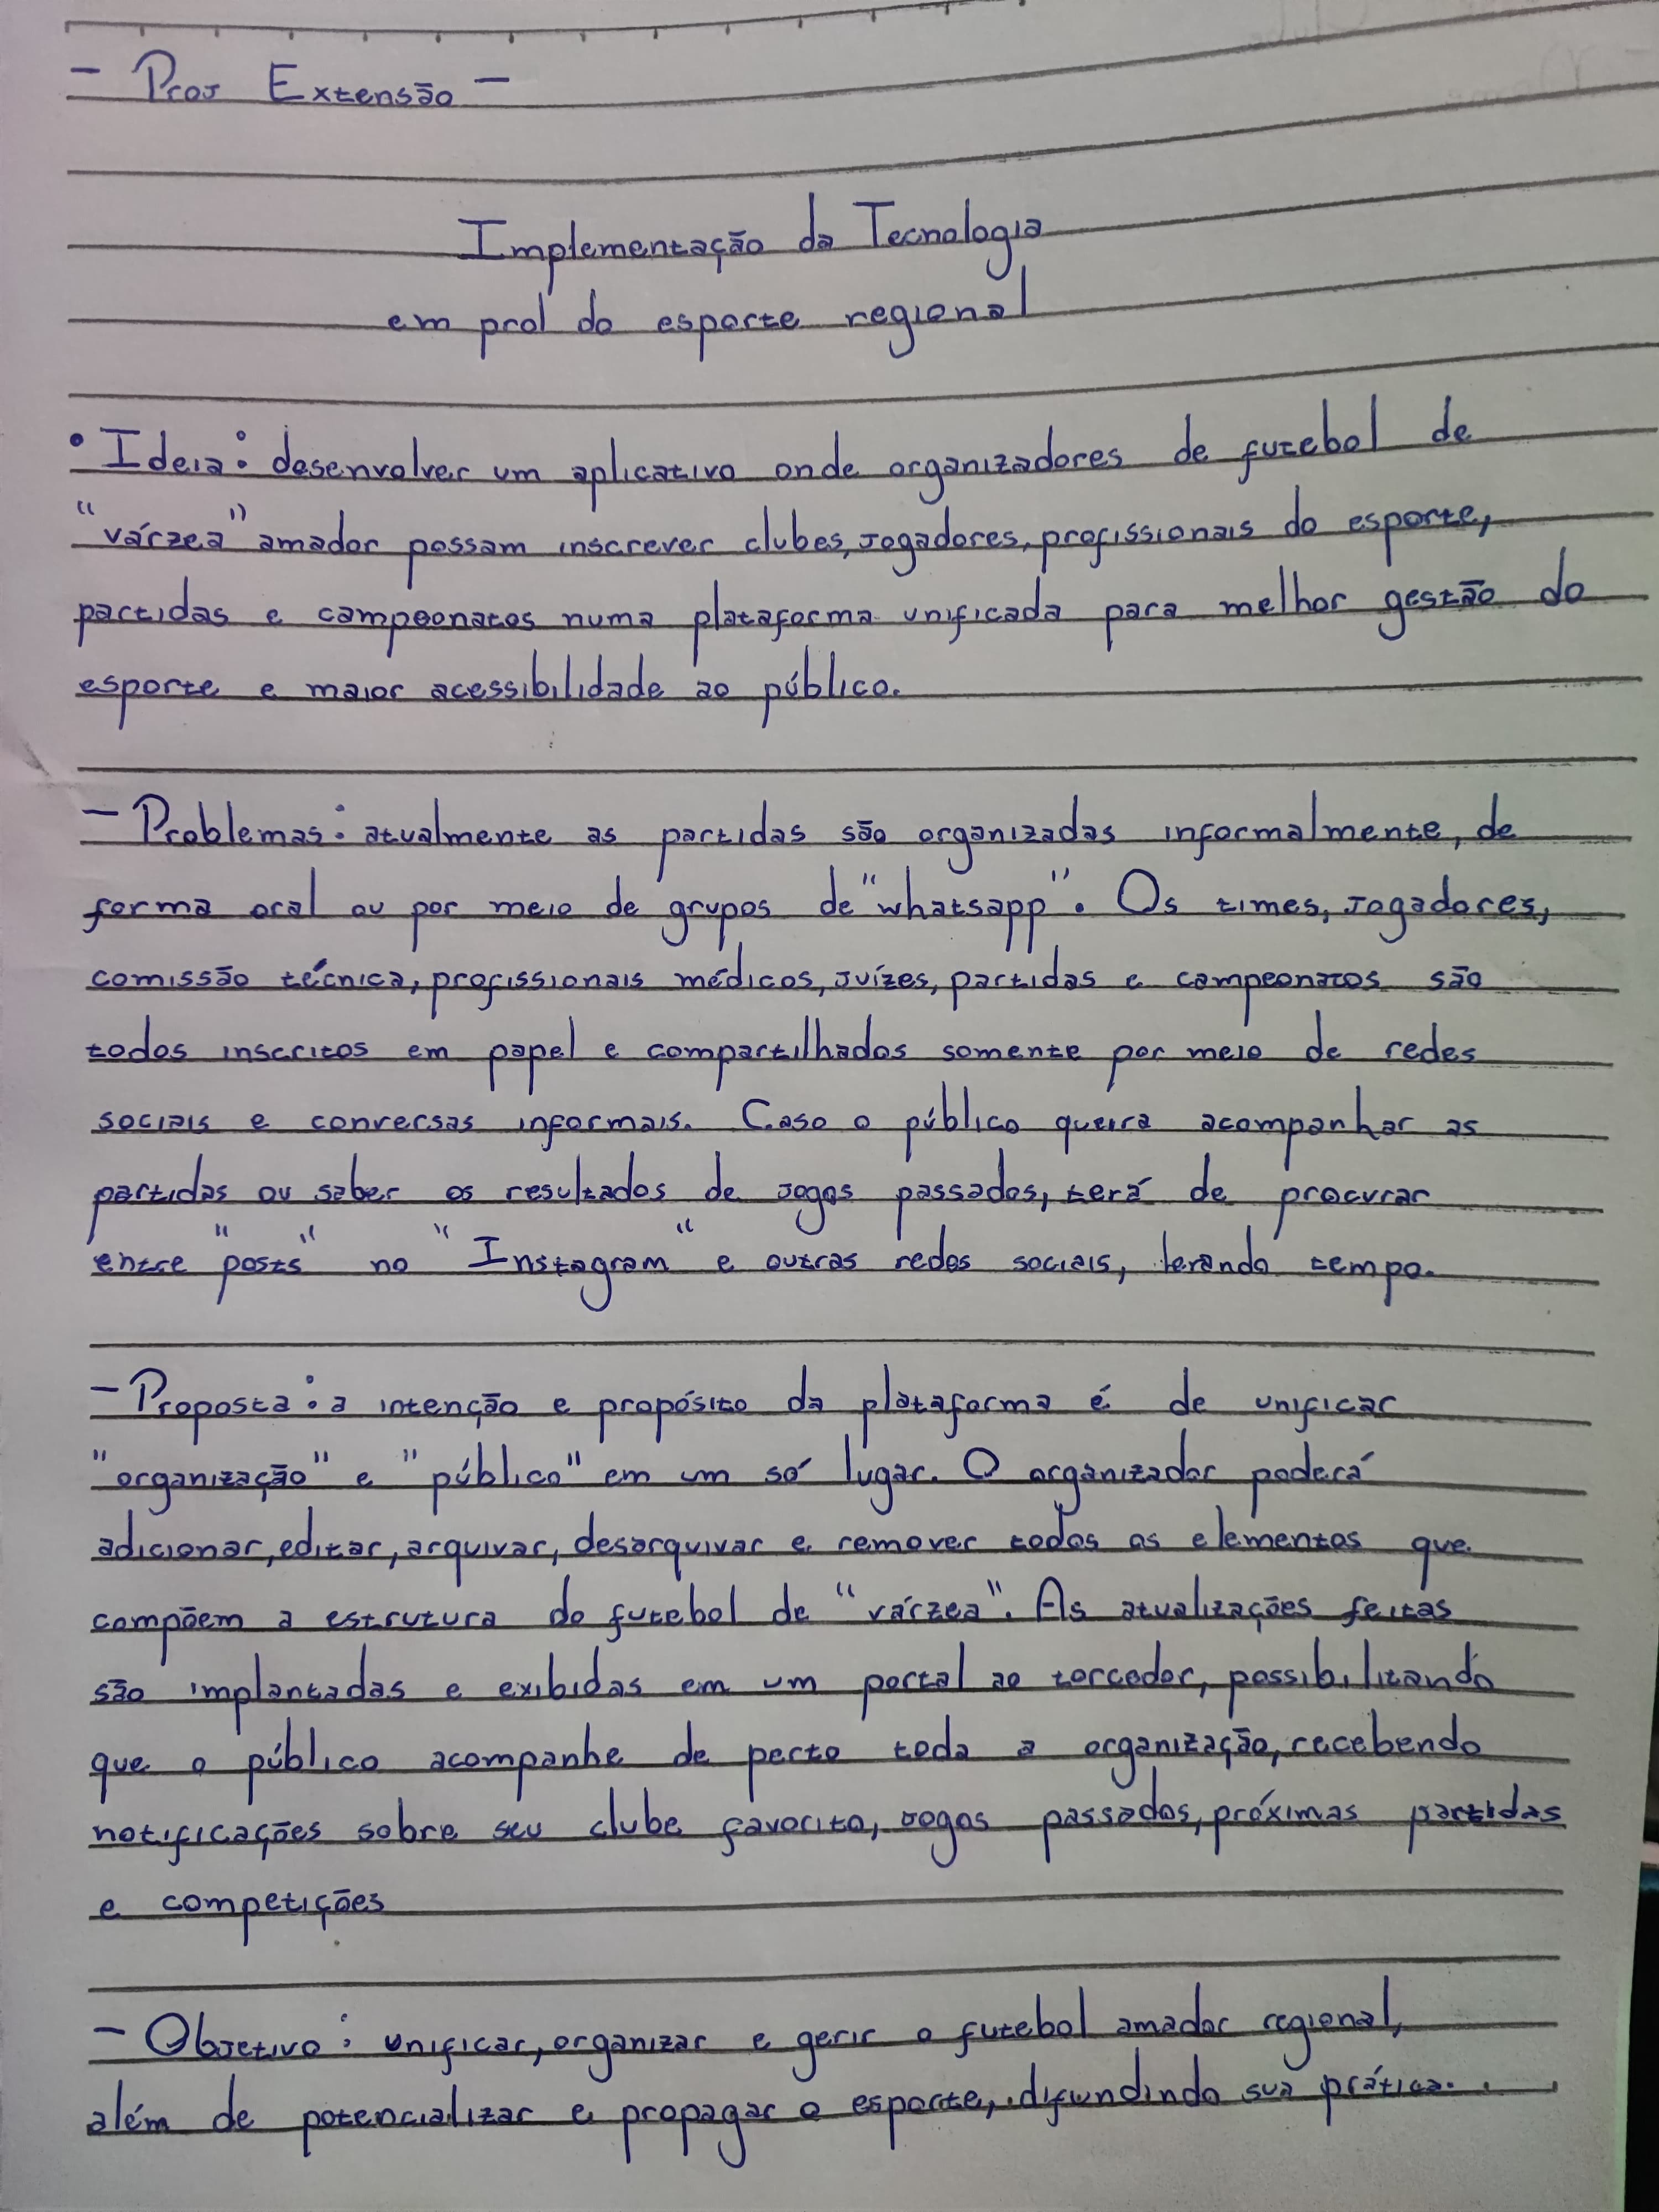 - Proj Extensão -
Implementação da Tecnologia
em prol do esporte regional
• Ideia: desenvolver um aplicativo onde organizadores de futebol de
"várzea" amador possam inscrever clubes, jogadores, profissionais do esporte,
partidas e campeonatos numa plataforma unificada para melhor gestão do
esporte e maior acessibilidade ao público.
- Problemas: atualmente as partidas são organizadas informalmente, de
forma oral ou por meio de grupos de "whatsapp". Os times, jogadores,
comissão técnica, profissionais médicos, juízes, partidas e campeonatos são
todos inscritos em papel e compartilhados somente por meio de redes
sociais e conversas informais. Caso o público queira acompanhar as
partidas ou saber os resultados de jogos passados, terá de procurar
entre "posts" no "Instagram" e outras redes sociais, levando tempo.
- Proposta: a intenção e propósito da plataforma é de unificar
"organização" e "público" em um só lugar. O organizador poderá
adicionar, editar, arquivar, desarquivar e remover todos os elementos que
compõem a estrutura do futebol de "várzea". As atualizações feitas
são implantadas e exibidas em um portal ao torcedor, possibilitando
que o público acompanhe de perto toda a organização, recebendo
notificações sobre seu clube favorito, jogos passados, próximas partidas
e competições
- Objetivo: unificar, organizar e gerir o futebol amador regional,
além de potencializar e propagar o esporte, difundindo sua prática.